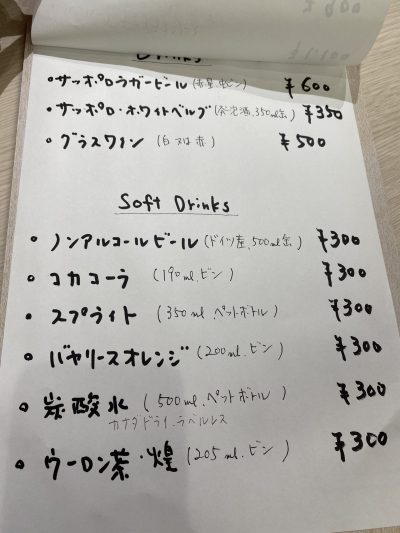 Drinks
・サッポロラガービール (赤星、中ビン) ¥600
・サッポロ・ホワイトベルグ (発泡酒、350ml缶) ¥350
・グラスワイン (白又は赤) ¥500
Soft Drinks
・ノンアルコールビール (ドイツ産、500ml缶) ¥300
・コカコーラ (190ml、ビン) ¥300
・スプライト (350ml、ペットボトル) ¥300
・バヤリースオレンジ (200ml、ビン) ¥300
・炭酸水 (500ml、ペットボトル) ¥300
カナダドライ、ラベルレス
・ウーロン茶・煌 (205ml、ビン) ¥300